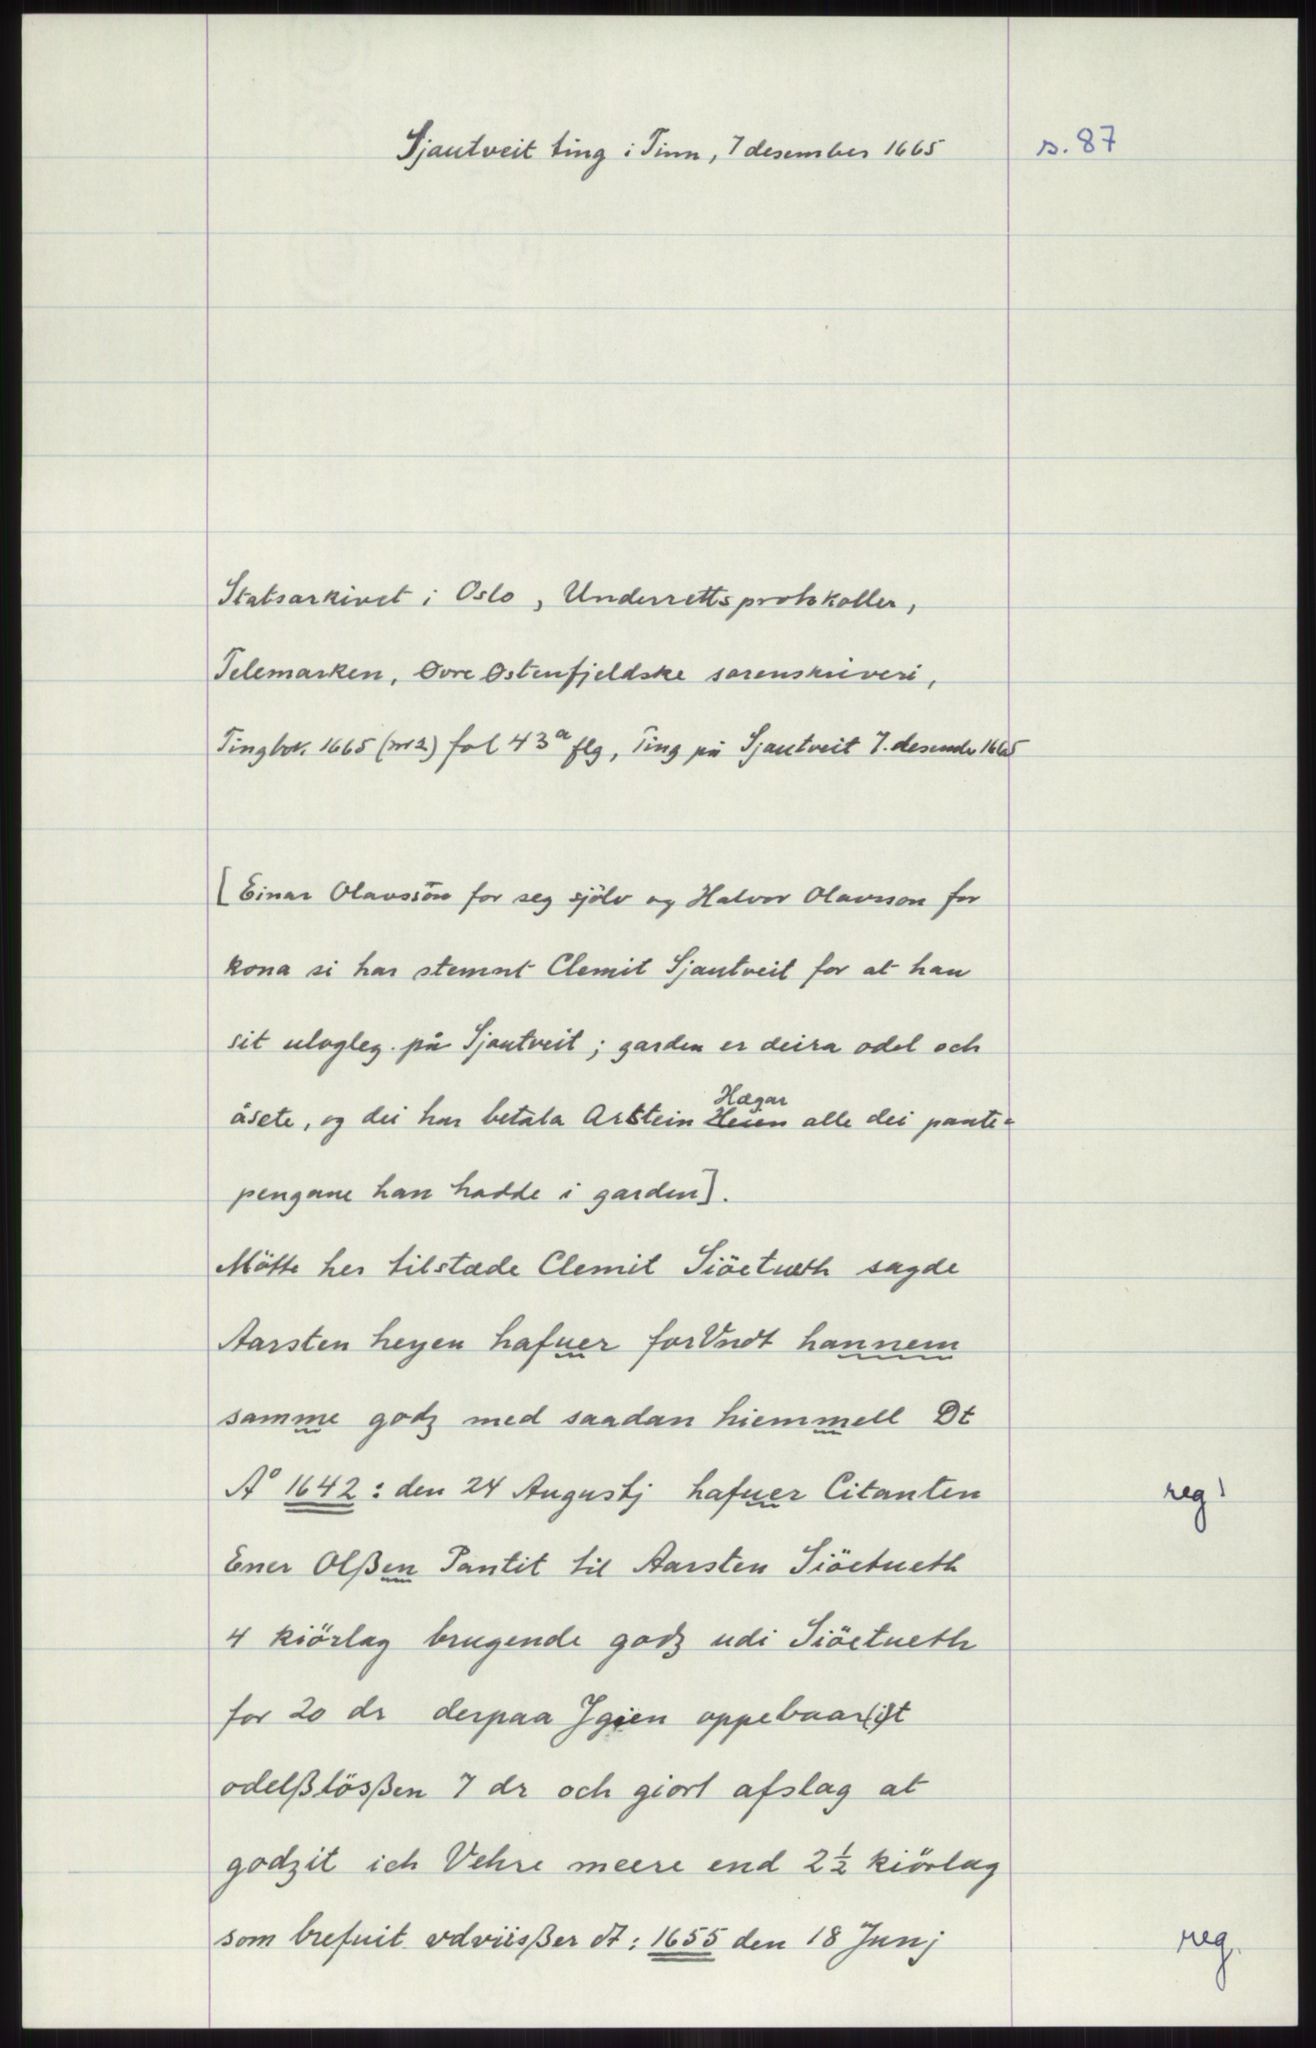 Sjautveit ting i Tinn, 7 desember 1665 s. 87
Statsarkivet i Oslo, Underrettsprotokoller,
Telemarken, Øvre Østenfjeldske sorenskriveri,
Tingbok 1665 (nr 2) fol 43a flg, Ting på Sjautveit 7. desembr 1665
[Einar Olavsson for seg sjölv og Halvor Olavsson for
kona si har stemnt Clemit Sjautveit for at han
sit ulogleg på Sjautveit; garden er deira odel och
åsete, og dei har betala Arstein Heien Hægar alle dei pante-
pengane han hadde i garden].
Mötte her tilstæde Clemit Siöetueth sagde
Aarsten heyen hafuer forVndt hannem
samme godz med saadan hiemmell Dt
Ao 1642: den 24 Augustj hafuer Citanten reg!
Ener Olßen Pantit til Aarsten Siöetueth
4 kiörlag brugende godz udi Siöetueth
for 20 dr derpaa Jgien oppebaar(i)t
odelßlösßen 7 dr och giort afslag at
godzit ich Vehre meere end 2½ kiörlag
som brefuit vdviisßer dt: 1655 den 18 Junj reg.